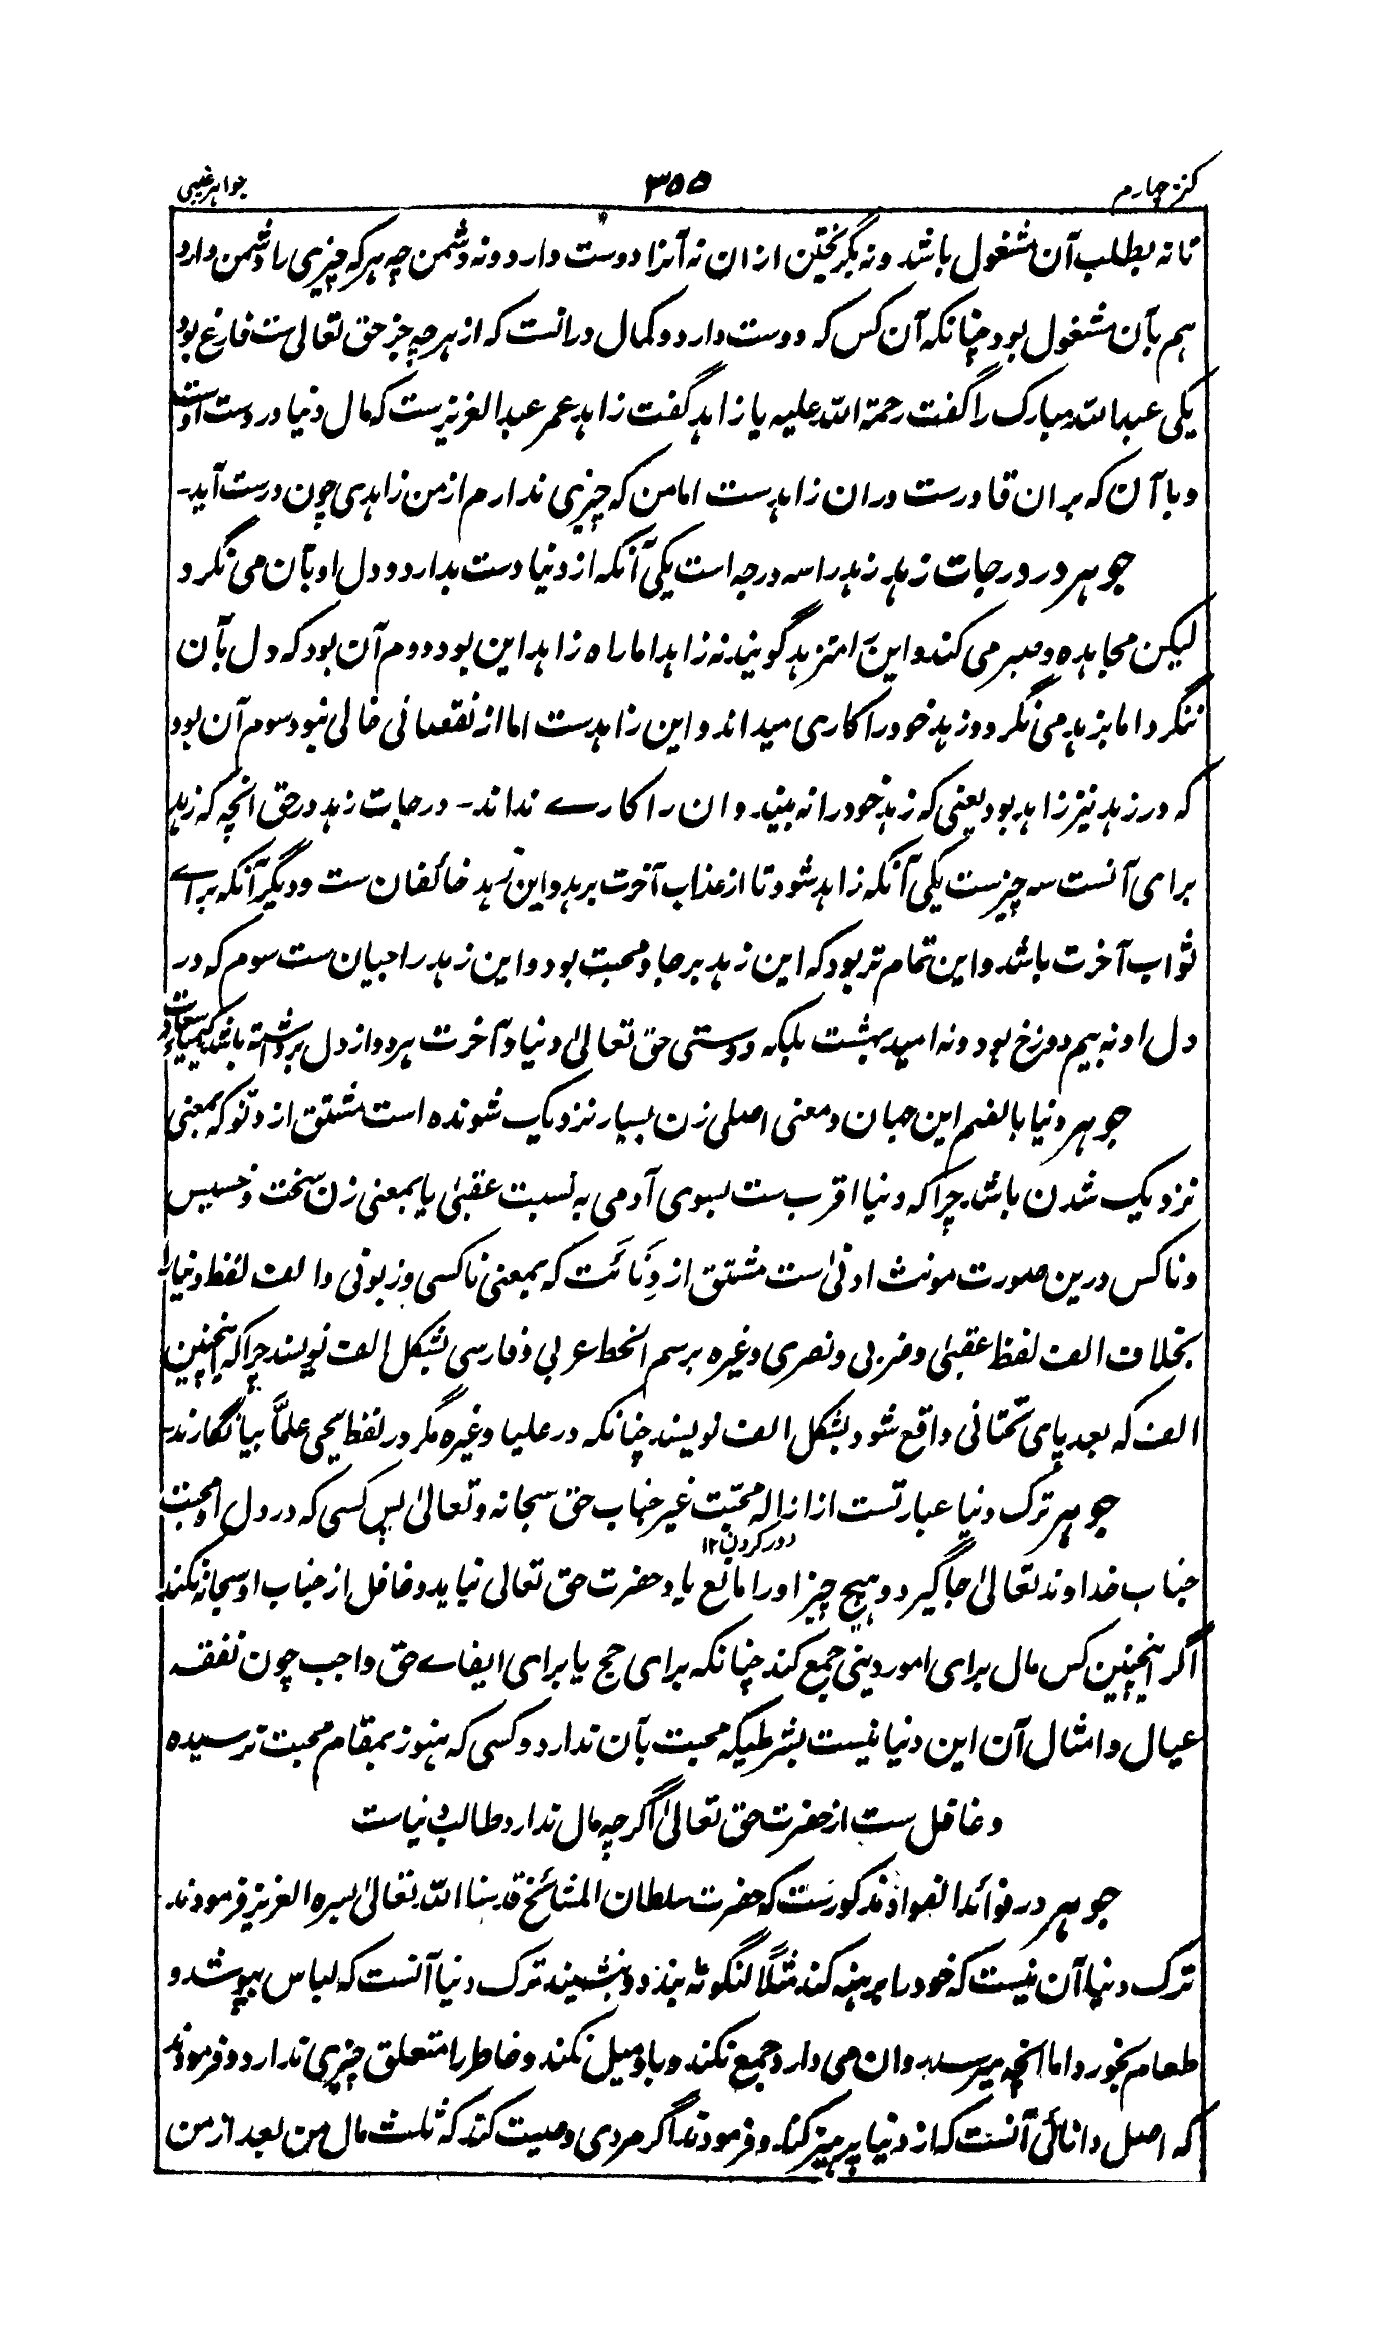 کنز چهارم ۳۵۵ جواهر غیبی
تا نه بطلب آن مشغول باشد و نه بگریختن ازان نه آنرا دوست دارد و نه دشمن چه هرکه چیزی را دشمن دارد
هم بآن مشغول بود چنانکه آن کس که دوست دارد و کمال درانست که از هرچه جز حق تعالی ست فارغ بود
یکی عبدالله مبارک را گفت رحمة الله علیه یا زاهد گفت زاهد عمر عبدالعزیزست که مال دنیا در دست اوست
و باآن که بران قادرست دران زاهدست امامن که چیزی ندارم از من زاهدی چون درست آید-
جوهر در درجات زهد زهد را سه درجه است یکی آنکه از دنیا دست بدارد و دل او بآن می نگرد
لیکن مجاهده و صبر می کند و این را متزهد گویند نه زاهد اما راه زاهد این بود دوم آن بود که دل بآن
ننگرد اما بزهد می نگرد و زهد خود را کاری میداند و این زاهدست اما از نقصانی خالی نبود سوم آن بود
که در زهد نیز زاهد بود یعنی که زهد خود را نه بیند و ان را کارے نداند- درجات زهد در حق انچه که زهد
برای آنست سه چیزست یکی آنکه زاهد شود تا از عذاب آخرت برهد و این زهد خائفان ست و دیگر آنکه براے
ثواب آخرت باشد و این تمام تر بود که این زهد برجا و محبت بود و این زهد راجیان ست سوم که در
دل او نه بیم دوزخ بود و نه امید بهشت بلکه دوستی حق تعالیٰ دنیا و آخرت هر دو از دل برداشته باشد کیمیای سعادت
جوهر دنیا بالضم این جهان و معنی اصلی زن بسیار نزدیک شونده است مشتق از دنو که بمعنی
نزدیک شدن باشد چراکه دنیا اقرب ست بسوی آدمی به نسبت عقبیٰ یا بمعنی زن سخت و خسیس
و ناکس درین صورت مونث ادنیٰ است مشتق از دِنَائَت که بمعنی ناکسی و زبونی و الف لفظ دنیا را
بخلاف الف لفظ عقبیٰ و ضربی و نصری و غیره برسم الخط عربی و فارسی بشکل الف نویسند چراکه اینچنین
الف که بعد یای تحتانی واقع شود بشکل الف نویسند چنانکه در علیا و غیره مگر در لفظ یحیی علماً بیا نگارند
جوهر ترک دنیا عبارتست از ازاله محبّت غیر جناب حق سبحانه و تعالیٰ پس کسی که در دل او محبت
دور کردن ۱۲
جناب خداوند تعالیٰ جاگیرد و هیچ چیز او را مانع یاد حضرت حق تعالی نیاید و غافل از جناب او سبحانه نکند
اگر اینچنین کس مال برای امور دینی جمع کند چنانکه برای حج یا برای ایفاے حق واجب چون نفقه
عیال و امثال آن این دنیا نیست بشرطیکه محبت بآن ندارد و کسی که هنوز بمقام محبت نرسیده
و غافل ست از حضرت حق تعالیٰ اگرچه مال ندارد طالب دنیاست
جوهر در فوائد الفواد مذکورست که حضرت سلطان المشائخ قدسنا الله تعالیٰ بسره العزیز فرمودند
ترک دنیا آن نیست که خود را برهنه کند مثلاً لنگوٹه بندد و بنشیند ترک دنیا آنست که لباس بپوشد و
طعام بخورد اما انچه میرسد روان می دارد و جمع نکند و باو میل نکند و خاطر را متعلق چیزی ندارد و فرمودند
که اصل دانائی آنست که از دنیا پرهیز کند و فرمودند اگر مردی وصیت کند که ثلث مال من بعد از من